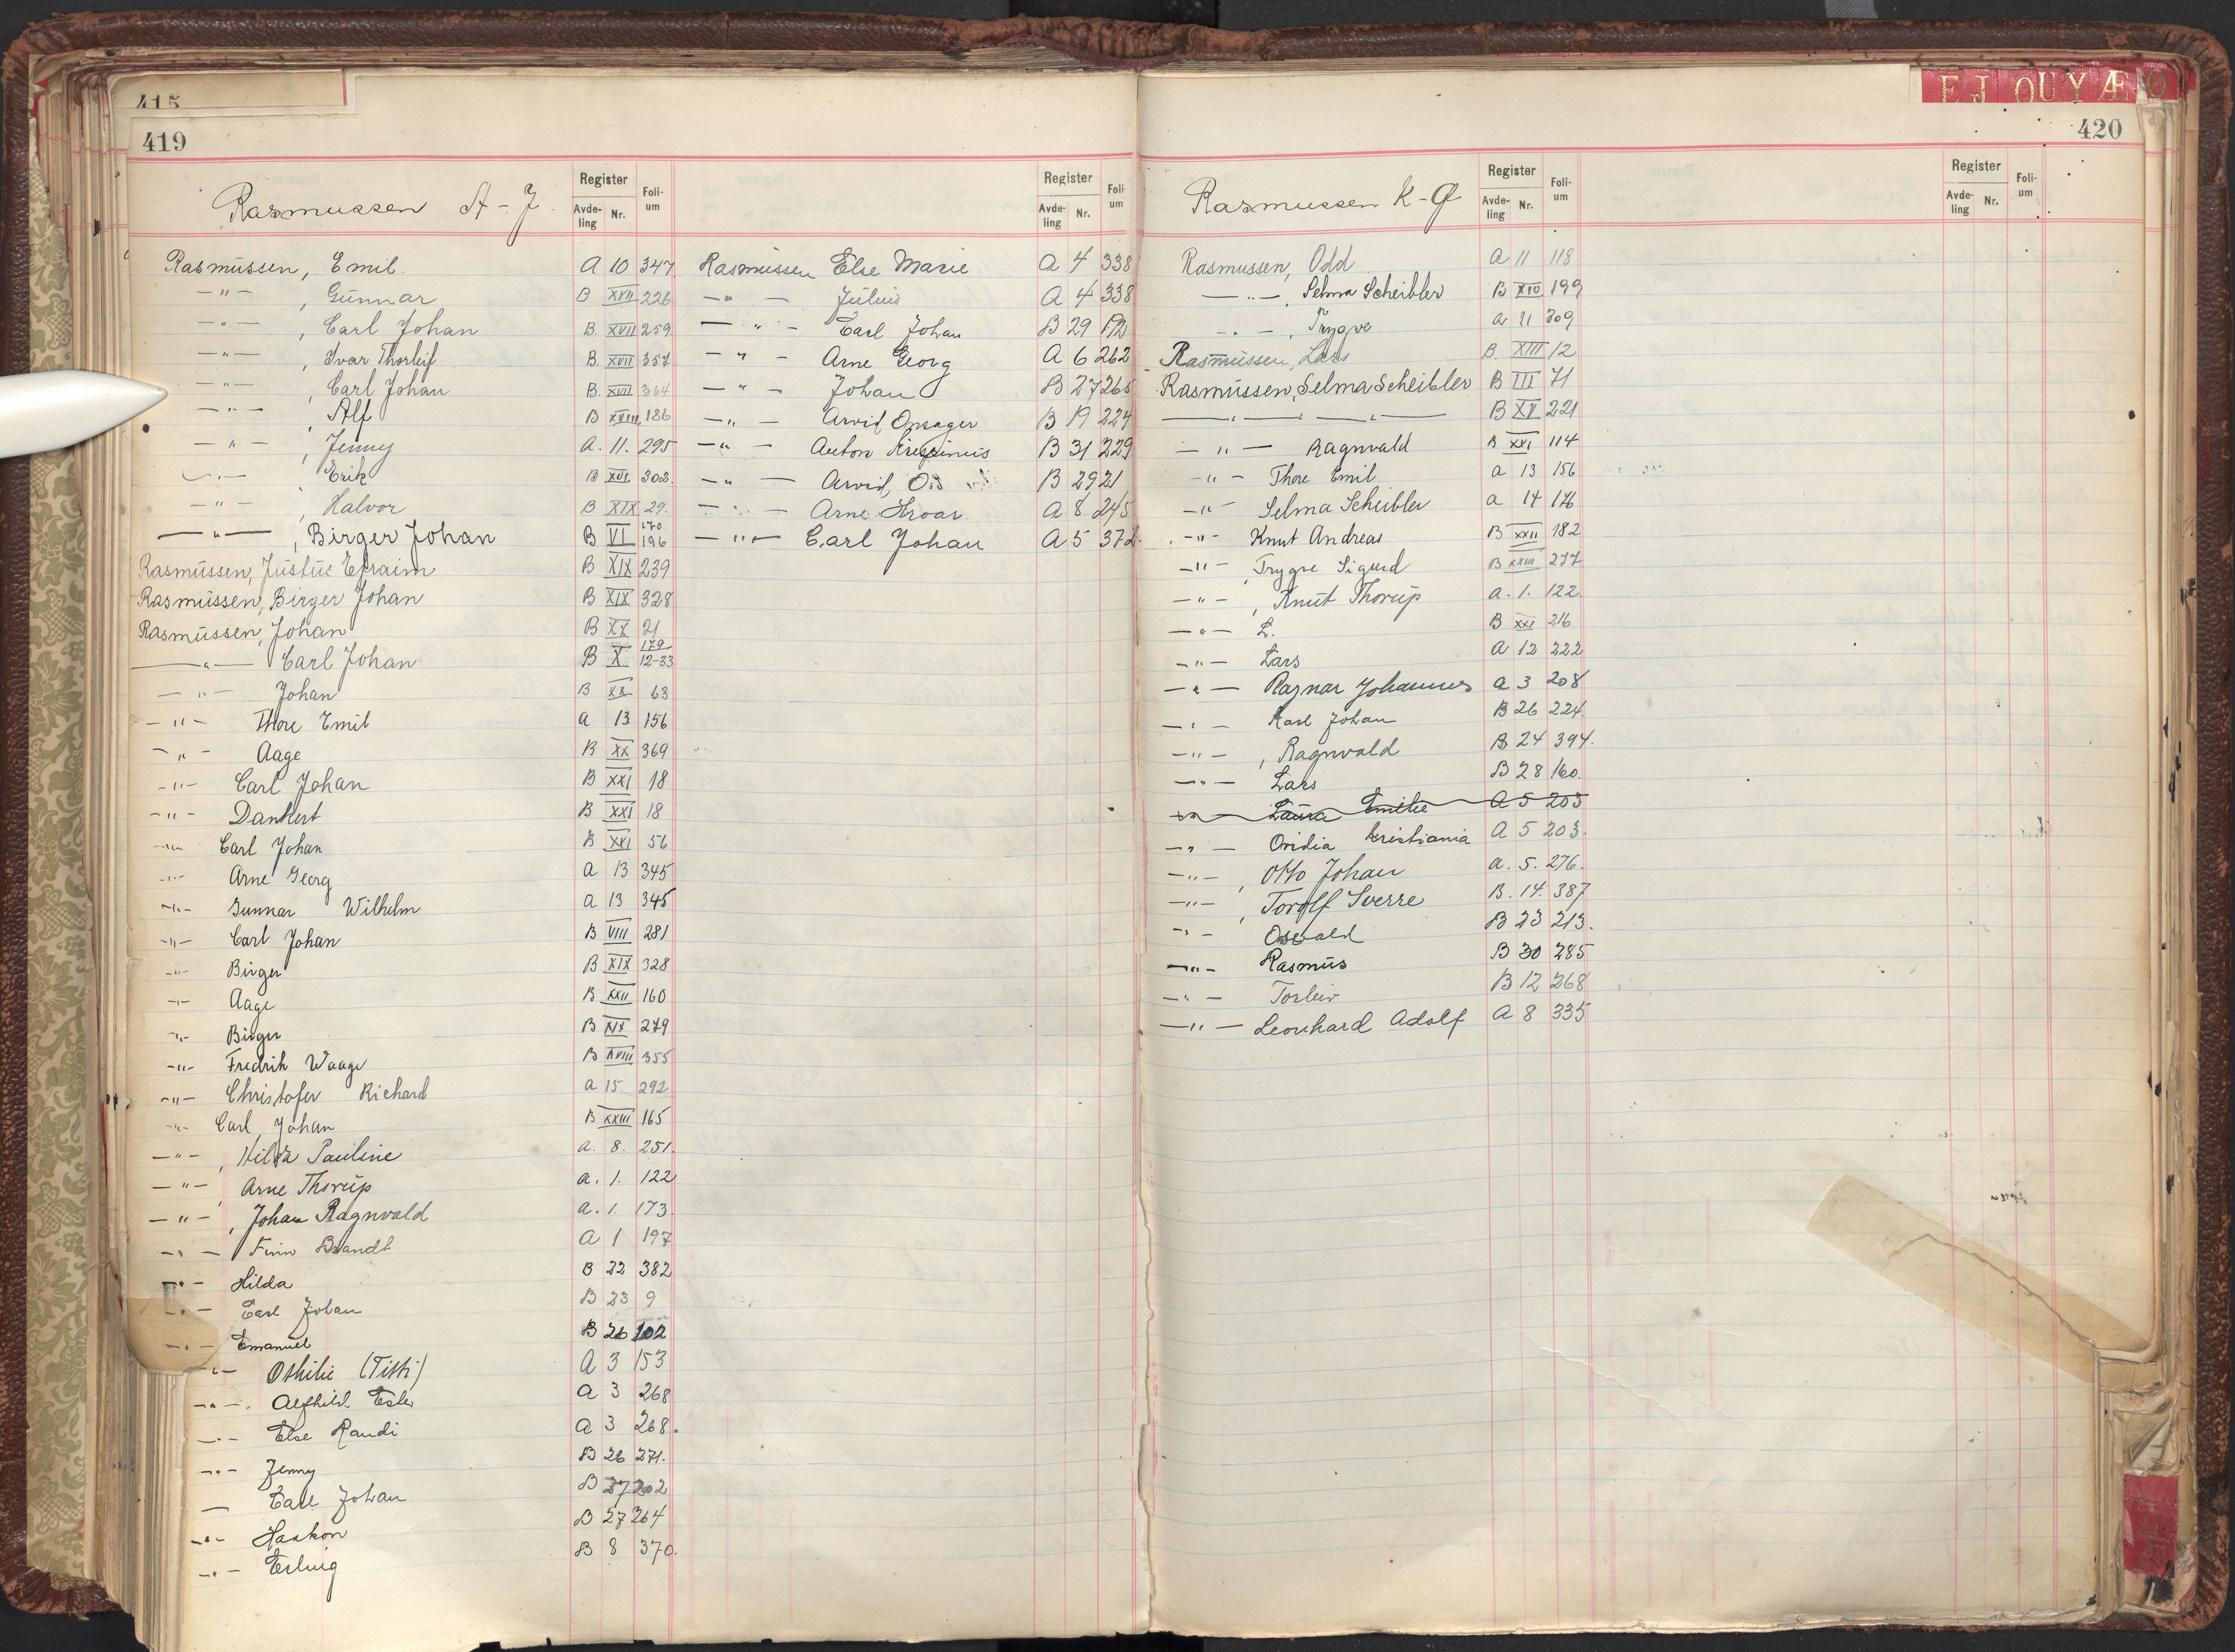 415
419
Rasmussen A-J.
Register
Avde-ling Nr.
Foli-um
Rasmussen, Emil. A 10 347
-"- , Gunnar B XVII 226
-"- , Carl Johan B. XVII 259
-"- , Ivar Thorleif B. XVII 357
-"- , Carl Johan B. XVII 364
-"- , Alf B XVIII 186
-"- , Jenny A. 11. 295
-"- Erik B XVI 302.
-"- , Halvor B XIX 29.
-"- , Birger Johan B VI 170 196
Rasmussen, Justus Efraim B XIX 239
Rasmussen, Birger Johan B XIX 328
Rasmussen, Johan B XX 21
-"- Carl Johan B X 179 12-33
-"- Johan B XX 63
-"- Thore Emil a 13 156
-"- Aage B XX 369
-"- Carl Johan B XXI 18
-"- Dankert B XXI 18
-"- Carl Johan B XXI 56
-"- Arne Georg a 13 345
-"- Gunnar Wilhelm a 13 345
-"- Carl Johan B VIII 281
-"- Birger B XIX 328
-"- Aage B XXII 160
-"- Birger B XIX 279
-"- Fredrik Waage B XVIII 355
-"- Christofer Richard a 15 292
-"- Carl Johan B XXIII 165
-"- , Hilda Pauline a. 8. 251.
-"- , Arne Thorup a. 1. 122
-"- , Johan Ragnvald a. 1. 173.
-"- Finn Brandt A 1 197
-"- Hilda B 22 382
-"- Carl Johan B 23 9
-"- Emanuel B 26 102
-"- Othilie (Titti) A 3 153
-"- Alfhild Ester a 3 268
-"- Else Randi A 3 268.
-"- Jenny B 26 271.
- Carl Johan B 27 202
-"- Haakon B 27 264
-"- Erling B 8 370.
Register
Avde-ling Nr.
Foli-um
Rasmussen Else Marie A 4 338
-"- Julius A 4 338
-"- Carl Johan B 29 192
-"- Arne Georg A 6 262
-"- Johan B 27 265
-"- Arvid Onsager B 19 224
-"- Anton B 31 229
-"- Arvid, B 29 21
-"- Arne Hroar A 8 245
-"- Carl Johan A 5 372
E J O U Y Æ Ø
420
Rasmussen K-Ø
Register
Avde-ling Nr.
Foli-um
Rasmussen, Odd A 11 118
-"- , Selma Scheibler B XIV 199
-"- , Trygve a 11 309
Rasmussen, Lars B. XIII 12
Rasmussen, Selma Scheibler B III 71
-"- -"- B XV 221
-"- Ragnvald B XXI 114
-"- Thore Emil a 13 156
-"- Selma Scheibler a 14 176
-"- Knut Andreas B XXII 182
-"- , Trygve Sigurd B XXIII 277
-"- , Knut Thorup a. 1. 122.
-"- L. B XXI 216
-"- Lars A 12 222
-"- Ragnar Johannes a 3 208
-"- Karl Johan B 26 224.
-"- , Ragnvald B 24 394.
-"- Lars B 28 160.
-"- Laura Emilie A 5 203
-"- Ovidia Kristiania A 5 203.
-"- , Otto Johan a. 5. 276.
-"- , Torolf Sverre B. 14. 387
-"- Oswald B 23 213.
-"- Rasmus B 30 285
-"- Torleiv B 12 268
-"- Leonhard Adolf A 8 335
Register
Avde-ling Nr.
Foli-um